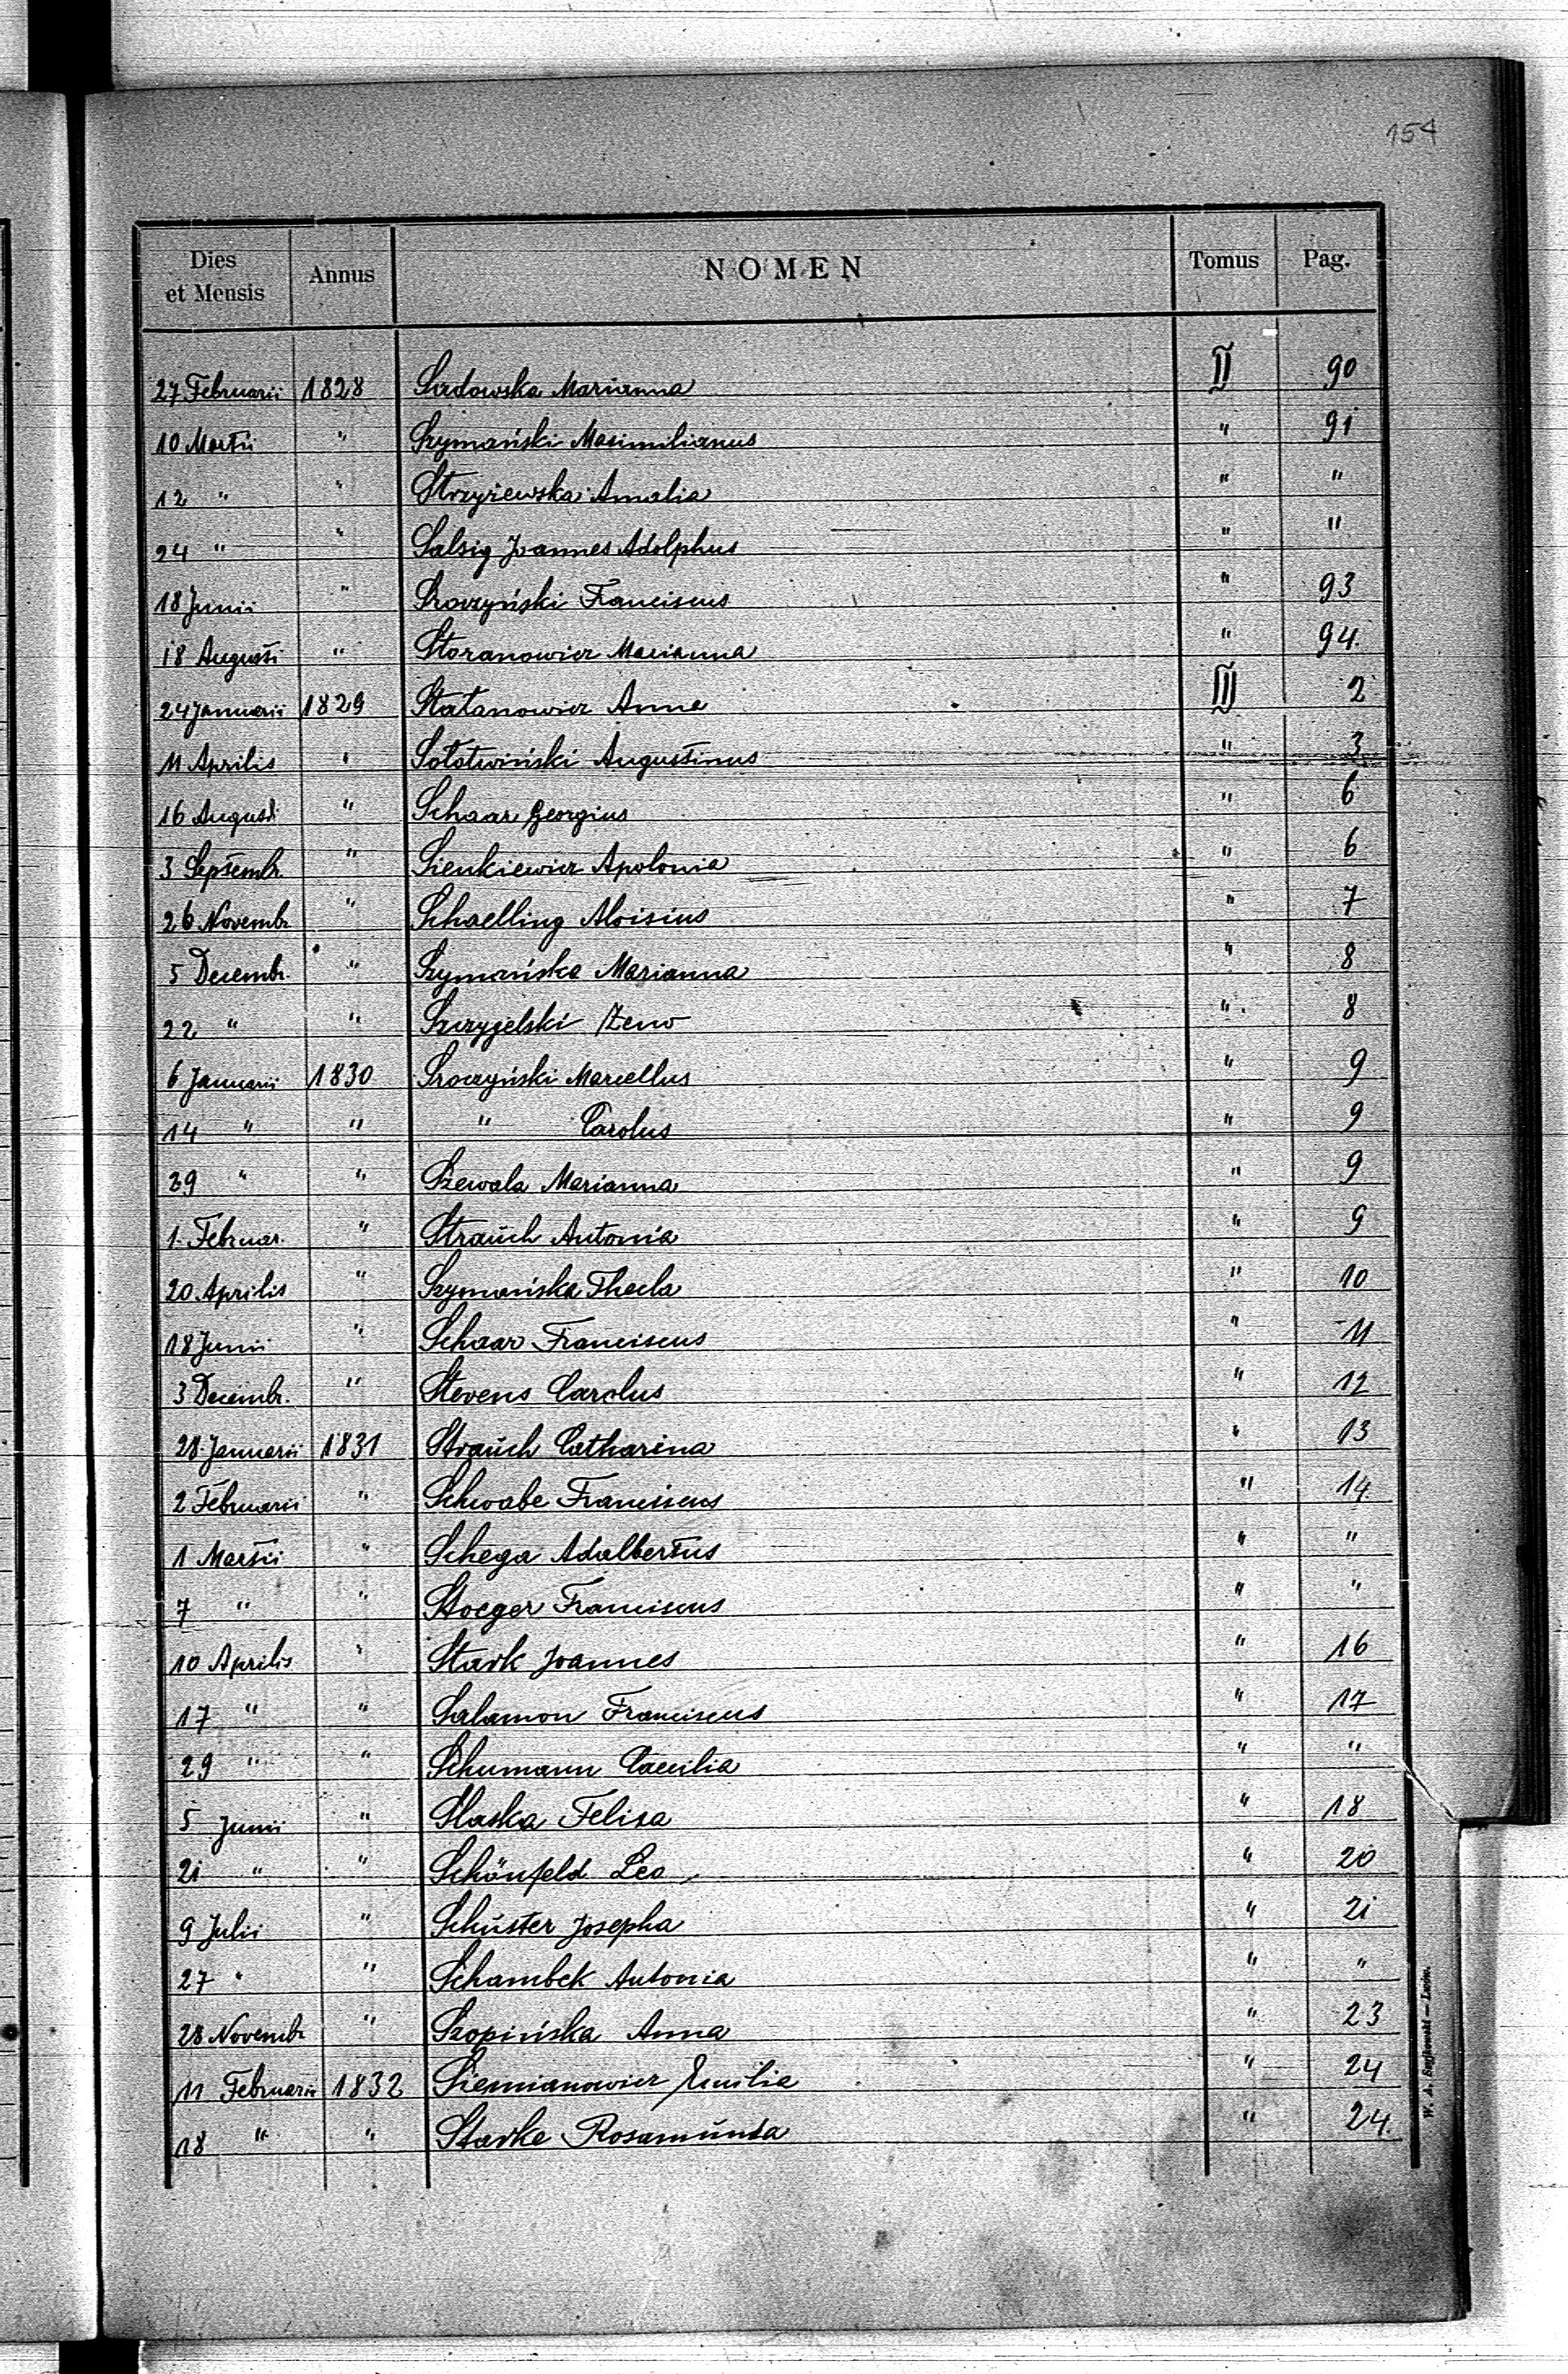 154
Dies et Mensis Annus NOMEN Tomus Pag.
27 Februarii 1828 Sadowska Marianna II 90
10 Martii " Szymański Maximilianus " 91
12 " " Strzyżewska Amalia " "
24 " " Salsig Joannes Adolphus " "
18 Junii " Sroczyński Franciscus " 93
18 Augusti " Storanowicz Marianna " 94.
24 Januarii 1829 Statanowicz Anna III 2
11 Aprilis " Sołotwiński Augustinus " 3
16 Augusti " Schaar Georgius " 6
3 Septembr. " Sienkiewicz Apolonia " 6
26 Novembr. " Schaelling Aloisius " 7
5 Decembr. " Szymańska Marianna " 8
22 " " Szczygelski Zeno " 8
6 Januarii 1830 Sroczyński Marcellus " 9
14 " " " Carolus " 9
29 " " Szewala Marianna " 9
1. Februar. " Strauch Antonia " 9
20 Aprilis " Szymańska Thecla " 10
18 Junii " Schaar Franciscus " 11
3 Decembr. " Stevens Carolus " 12
28. Januarii 1831 Strauch Catharina " 13
2 Februarii " Schwabe Franciscus " 14
1 Martii " Schega Adalbertus " "
7 " " Stoeger Franciscus " "
10 Aprilis " Stark Joannes " 16
17 " " Salamon Franciscus " 17
29 " " Schumann Caecilia " "
5 Junii " Slaska Felixa " 18
21 " " Schönfeld Leo " 20
9 Julii " Schuster Josepha " 21
27 " " Schambek Antonia " "
28 Novembr. " Szopińska Anna " 23
11 Februarii 1832 Siemianowicz Emilia " 24
18 " " Starke Rosamunda " 24.